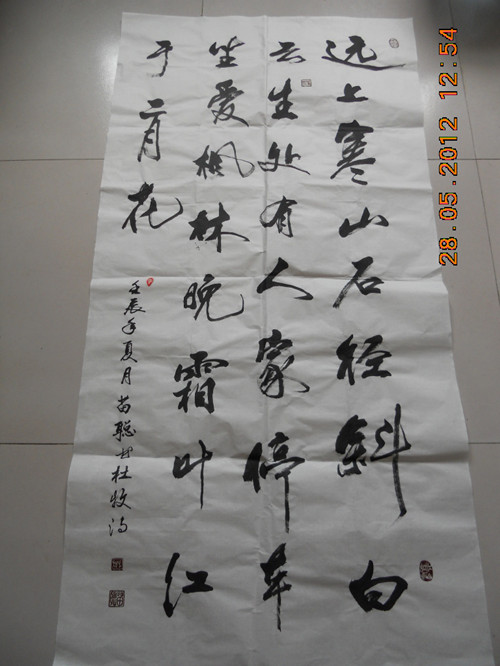 远上寒山石径斜白
云生处有人家停车
坐爱枫林晚霜叶红
于二月花
壬辰年夏月苗聪书杜牧诗
28.05.2012 12:54